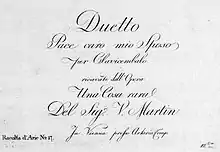 Duetto
Pace caro mio Sposo
per Clavicembalo
ricavato dall'Opera
Una Cosa rara
Del Sigr. V. Martin
In Vienna presso Artaria Comp.
Racolta d'Arie No 17.